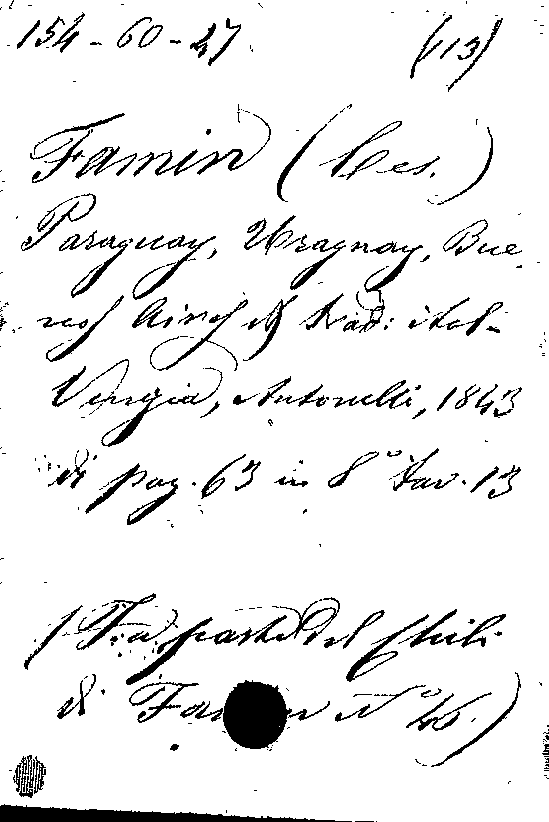 154-60-27 (13)
Famin (Ces.)
Paraguay, Uraguay, Bue
nos Aires Trad: ital-
Venezia, Antonelli, 1843
di pag. 63 in 8° Tav. 13
(Fa parte del Chili
di Famin N° 46.)